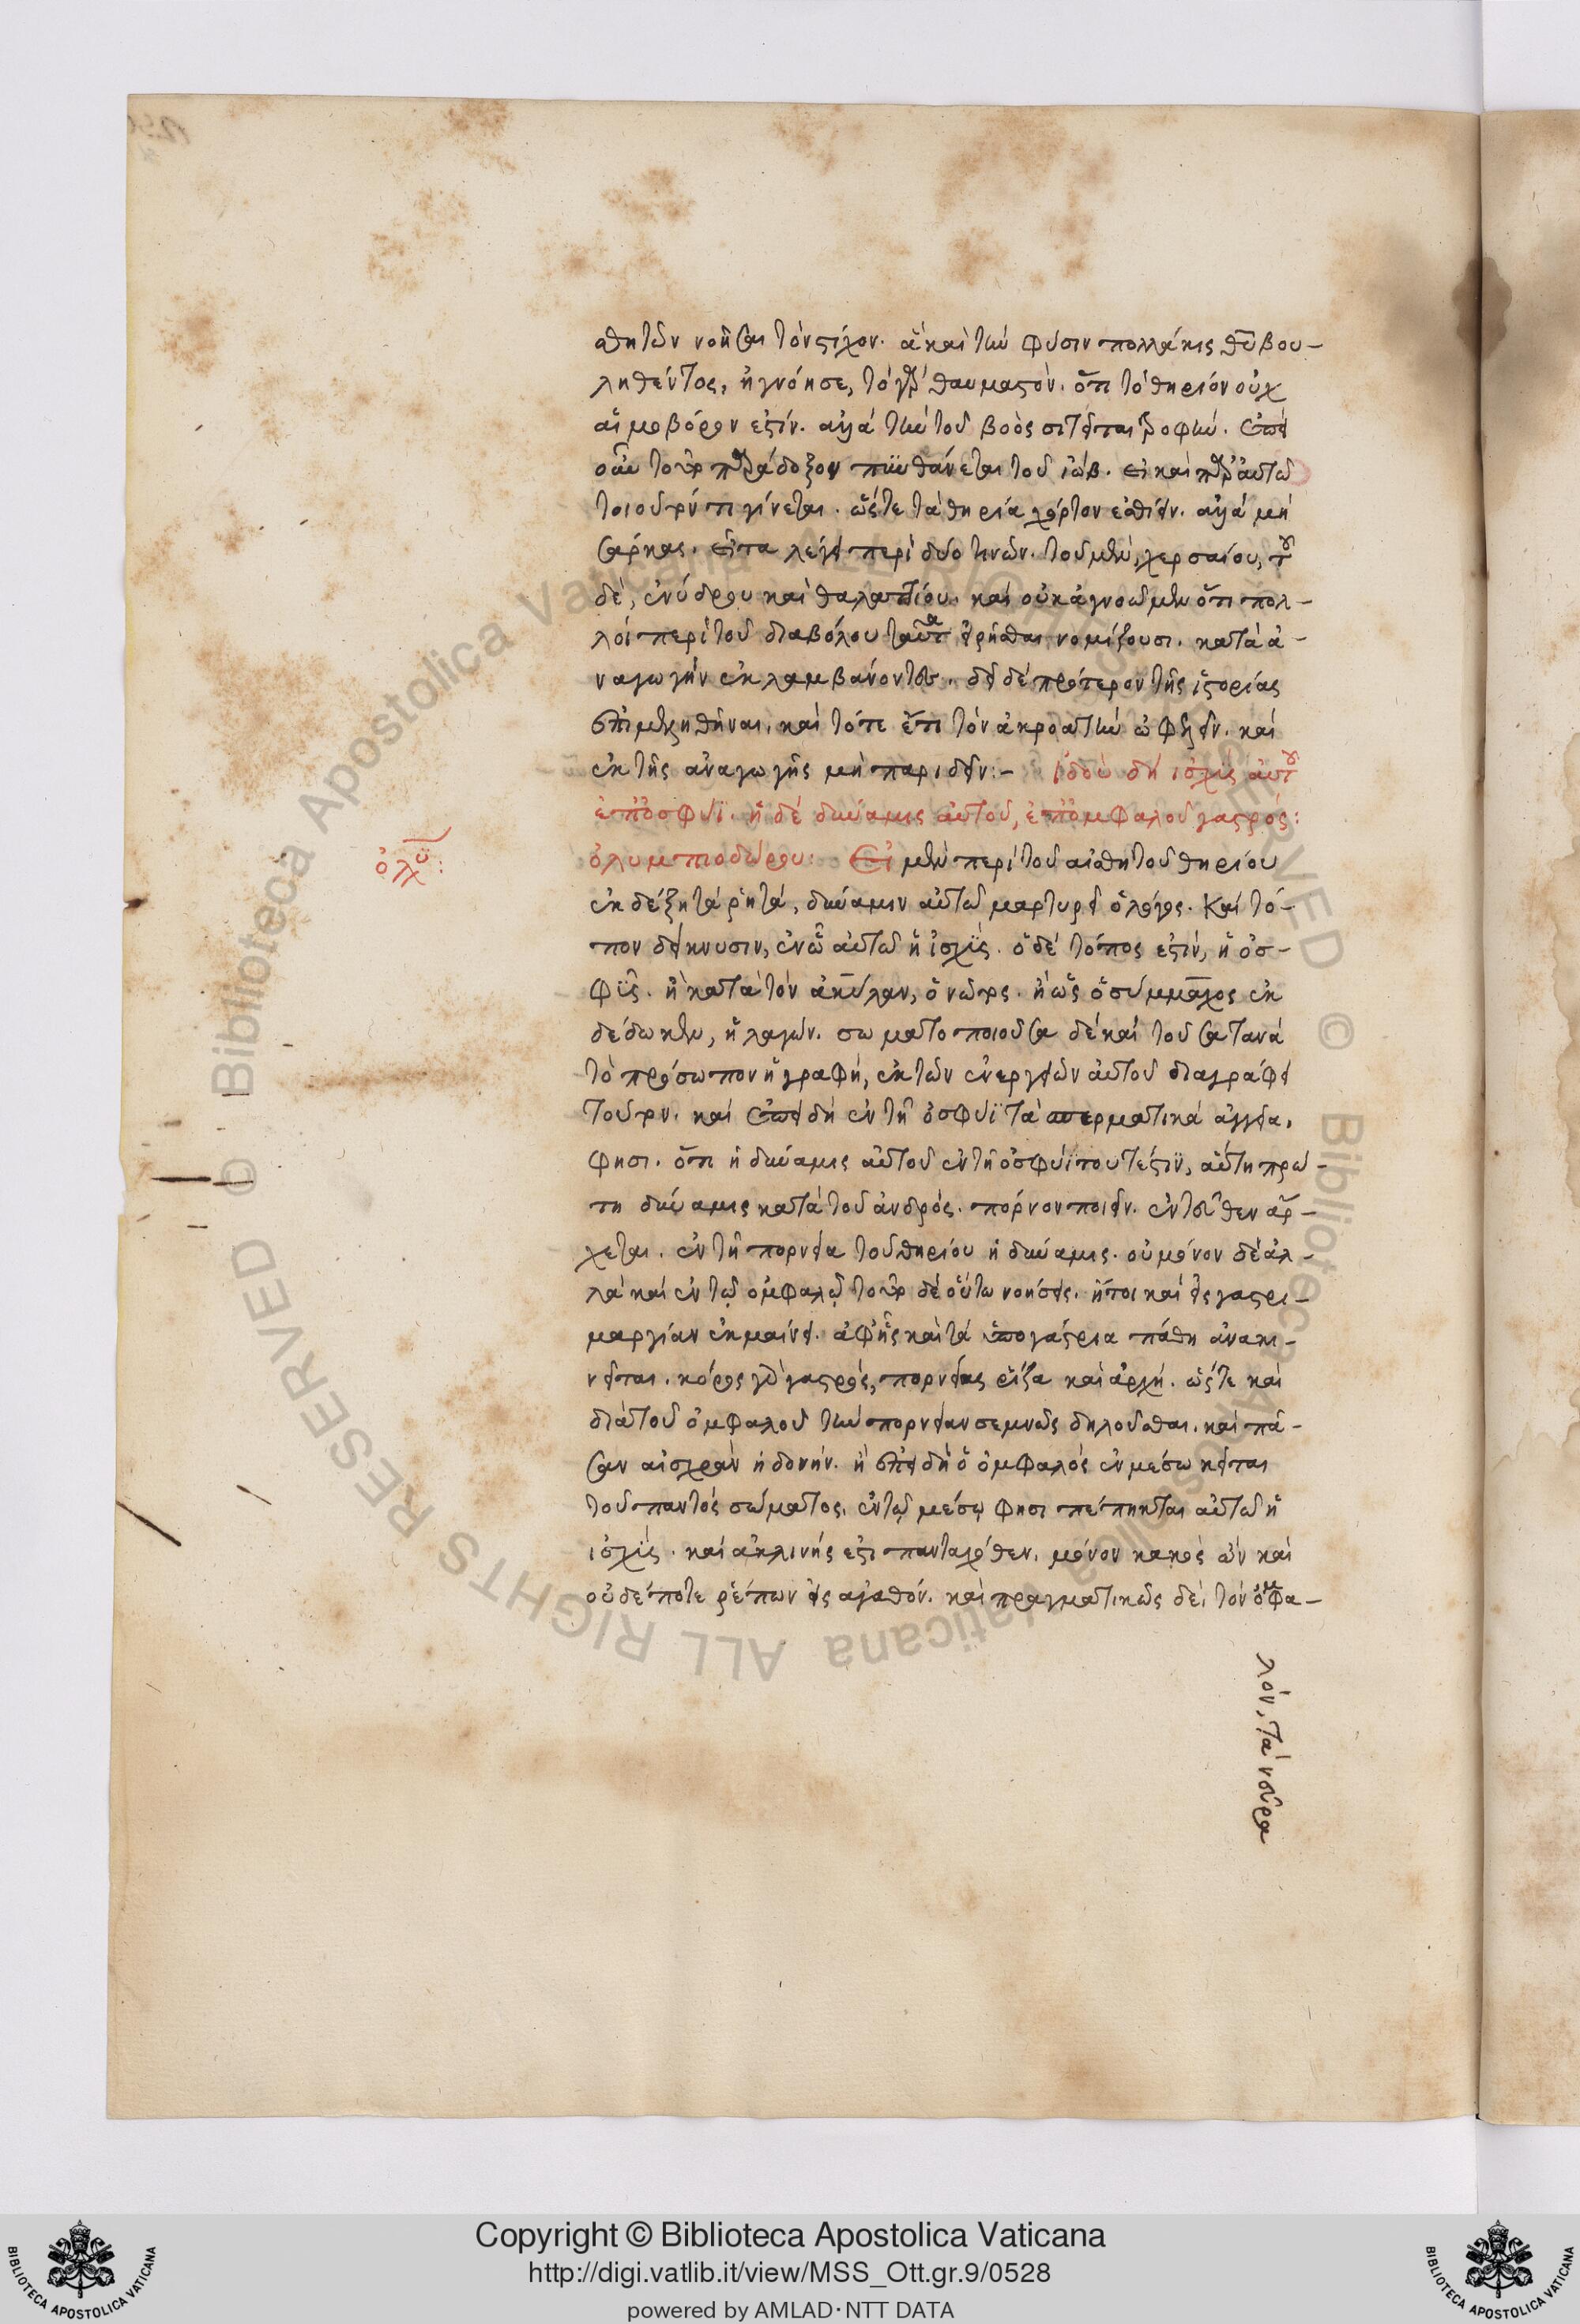 σθητῶν νοῆσαι τὸν στίχον. ἃ καὶ τὴν φύσιν πολλάκις θυ βου-
ληθέντος, ἠγνόησε, τὸ γὰρ θαυμαστὸν. ὅτι τὸ θηρίον οὐχ
αἱμοβόρον ἐστίν. ἀλλὰ τὴν τοῦ βοὸς σιτεῖται τροφήν.
οὖν τοῦτο παράδοξον πυνθάνεται τοῦ ἰώβ. εἰ καὶ παρ' αὐτῶ
τοιοῦτόν τι γίνεται. ὥστε τὰ θηρία χόρτον ἐσθίειν. ἀλλὰ μὴ
σάρκας. εἶτα λέγει περὶ δύο τινῶν. τοῦ μὲν, χερσαίου, τοῦ
δὲ, ἐνύδρου καὶ θαλαττίου. καὶ οὐκ ἀγνοοῦμεν ὅτι πολ-
λοὶ περὶ τοῦ διαβόλου ταῦτα εἰρῆσθαι νομίζουσι. κατὰ ἀ-
ναγωγὴν ἐκλαμβάνοντες. δεῖ δὲ πρότερον τῆς ἱστορίας
ἐπιμεληθῆναι, καὶ τότε ἔτι τὸν ἀκροατὴν ὠφελεῖν. καὶ
ἐκ τῆς ἀναγωγῆς μὴ παριδεῖν:- ἰδοὺ δὴ ἰσχὺς αὐτοῦ
ἐπ' ὀσφυϊ. ἡ δὲ δύναμις αὐτοῦ, ἐπ' ὀμφαλοῦ γαστρός:
ὀλυμπιοδώρου: Εἰ μὲν περὶ τοῦ αἰσθητοῦ θηρίου
ὀλυ:
ἐκδέξη τὰ ῥητὰ, δύναμιν αὐτῶ μαρτυρεῖ ὁ λόγος. Καὶ τό-
πον δείκνυσιν, ἐν ὧ αὐτῶ ἡ ἰσχύς. ὁ δὲ τόπος ἐστὶν, ἡ ὀσ-
φῦς. ἢ κατὰ τὸν ἀκύλαν, ὁ νῶτος. ἢ ὡς ὁ σύμμαχος ἐκ
δέδωκεν, ἡ λαγών. σωματοποιοῦσα δὲ καὶ τοῦ σατανᾶ
τὸ πρόσωπον ἡ γραφή, ἐκ τῶν ἐνεργειῶν αὐτοῦ διαγράφει
τοῦτον. καὶ ἐπειδὴ ἐν τῆ ὀσφυϊ τὰ σπερματικὰ ἀγγεῖα,
φησι. ὅτι ἡ δύναμις αὐτοῦ ἐν τῆ ὀσφύϊ τουτέστιν, αὕτη πρώ-
τη δύναμις κατὰ τοῦ ἀνδρός. πόρνον ποιεῖν. ἐντεῦθεν ἄρ-
χεται. ἐν τῆ πορνεία τοῦ θηρίου ἡ δύναμις. οὐ μόνον δὲ ἀλ-
λὰ καὶ ἐν τῷ ὀμφαλῷ τοῦτο δὲ οὕτω νοήσεις. ἤτοι καὶ εἰς γαστρι-
μαργίαν ἐκμαίνει. ἀφ' ἧς καὶ τὰ ὑπογάστρια πάθη ἀνακι-
νεῖται. κόρος γὰρ γαστρὸς, πορνείας ῥίζα καὶ ἀρχή. ὥστε καὶ
διὰ τοῦ ὀμφαλοῦ τὴν πορνείαν σεμνῶς δηλοῦσθαι. καὶ πᾶ-
σαν αἰσχρὰν ἡδονήν. ἢ ἐπειδὴ ὁ ὀμφαλὸς ἐν μέσω κεῖται
τοῦ παντὸς σώματος, ἐν τῷ μέσῳ φησι πέπηκται αὐτῶ ἡ
ἰσχὺς. καὶ ἀκλινής ἐστι πανταχόθεν, μόνον κακὸς ὢν καὶ
οὐδέποτε ῥέπων εἰς ἀγαθόν. καὶ πραγματικῶς δὲ, τὸν ὀμφα-
λὸν, τὰ νεῦρα
Copyright © Biblioteca Apostolica Vaticana
http://digi.vatlib.it/view/MSS_Ott.gr.9/0528
powered by AMLAD·NTT DATA
BIBLIOTECA APOSTOLICA VATICANA
BIBLIOTECA APOSTOLICA VATICANA
© Biblioteca Apostolica Vaticana ALL RIGHTS RESERVED © Biblioteca Apostolica Vaticana ALL RIGHTS RESERVED